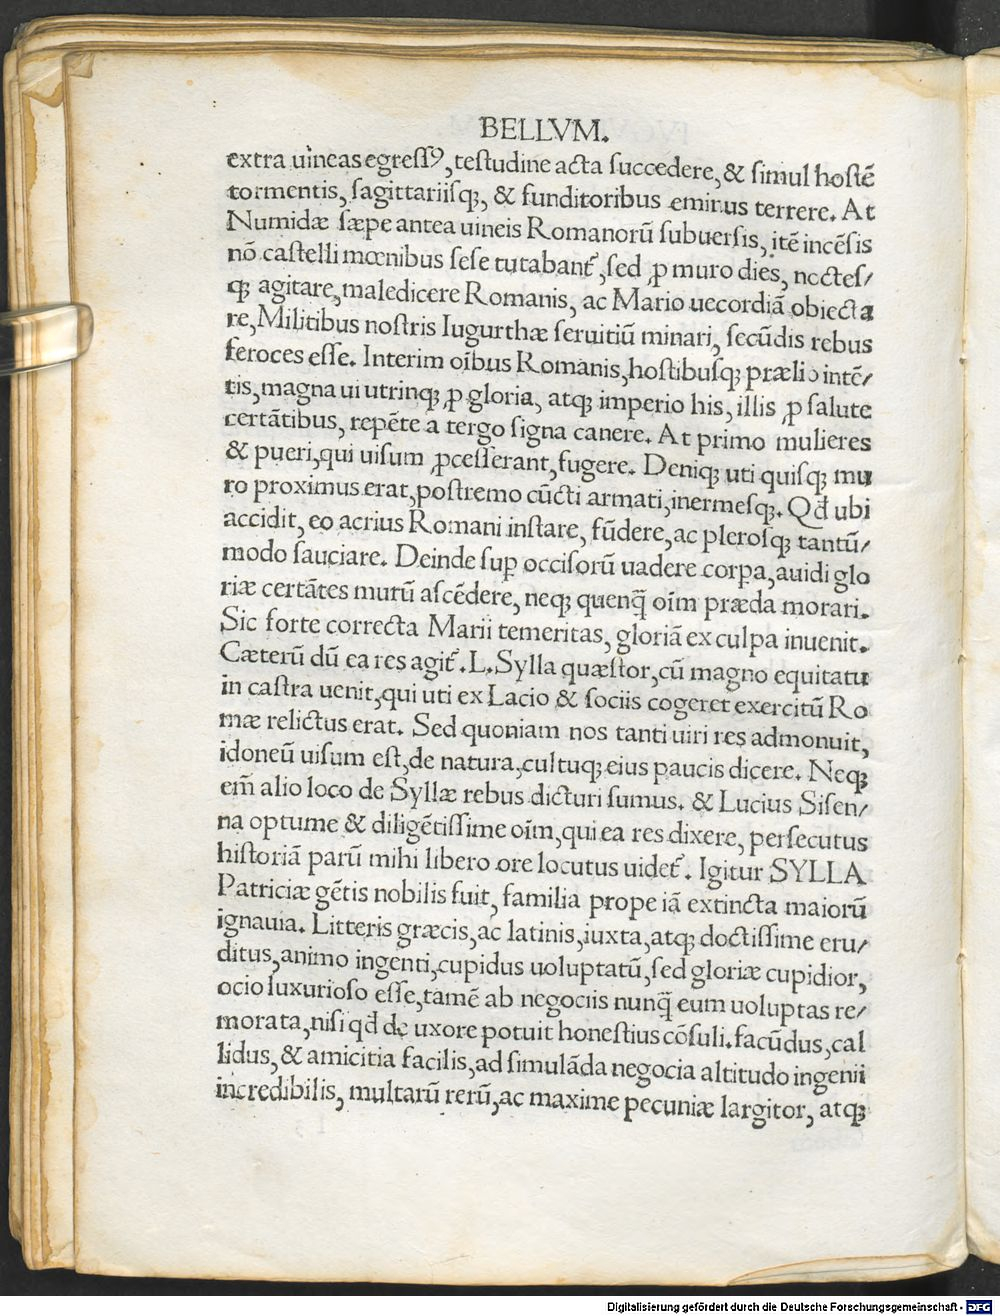 BELLVM.
extra uineas egressꝰ, testudine acta succedere, & simul hostē
tormentis, sagittariisqꝫ, & funditoribus eminus terrere. At
Numidæ sæpe antea uineis Romanorū subuersis, itē incēsis
nō castelli mœnibus sese tutabant᷑, sed ꝓ muro dies, noctes/
qꝫ agitare, maledicere Romanis, ac Mario uecordiā obiecta
re, Militibus nostris Iugurthæ seruitiū minari, secūdis rebus
feroces esse. Interim oībus Romanis, hostibusqꝫ prælio intē/
tis, magna ui utrinqꝫ ꝓ gloria, atqꝫ imperio his, illis ꝓ salute
certātibus, repēte a tergo signa canere. At primo mulieres
& pueri, qui uisum ꝓcesserant, fugere. Deniqꝫ uti quisqꝫ mu
ro proximus erat, postremo cūcti armati, inermesqꝫ. Qđ ubi
accidit, eo acrius Romani instare, fūdere, ac plerosqꝫ tantū/
modo sauciare. Deinde suꝑ occisorū uadere corꝑa, auidi glo
riæ certātes murū ascēdere, neqꝫ quenq̄ oīm præda morari.
Sic forte correcta Marii temeritas, gloriā ex culpa inuenit.
Cæterū dū ea res agit᷑. L. Sylla quæstor, cū magno equitatu
in castra uenit, qui uti ex Lacio & sociis cogeret exercitū Ro
mæ relictus erat. Sed quoniam nos tanti uiri res admonuit,
idoneū uisum est, de natura, cultuqꝫ eius paucis dicere. Neqꝫ
em̄ alio loco de Syllæ rebus dicturi sumus. & Lucius Sisen/
na optume & diligētissime oīm, qui ea res dixere, persecutus
historiā parū mihi libero ore locutus uidet᷑. Igitur SYLLA
Patriciæ gētis nobilis fuit, familia prope iā extincta maiorū
ignauia. Litteris græcis, ac latinis, iuxta, atqꝫ doctissime eru/
ditus, animo ingenti, cupidus uoluptatū, sed gloriæ cupidior,
ocio luxurioso esse, tamē ab negociis nunq̄ eum uoluptas re/
morata, nisi qđ de uxore potuit honestius cōsuli. facūdus, cal
lidus, & amicitia facilis, ad simulāda negocia altitudo ingenii
incredibilis, multarū rerū, ac maxime pecuniæ largitor, atqꝫ
Digitalisierung gefördert durch die Deutsche Forschungsgemeinschaft - DFG